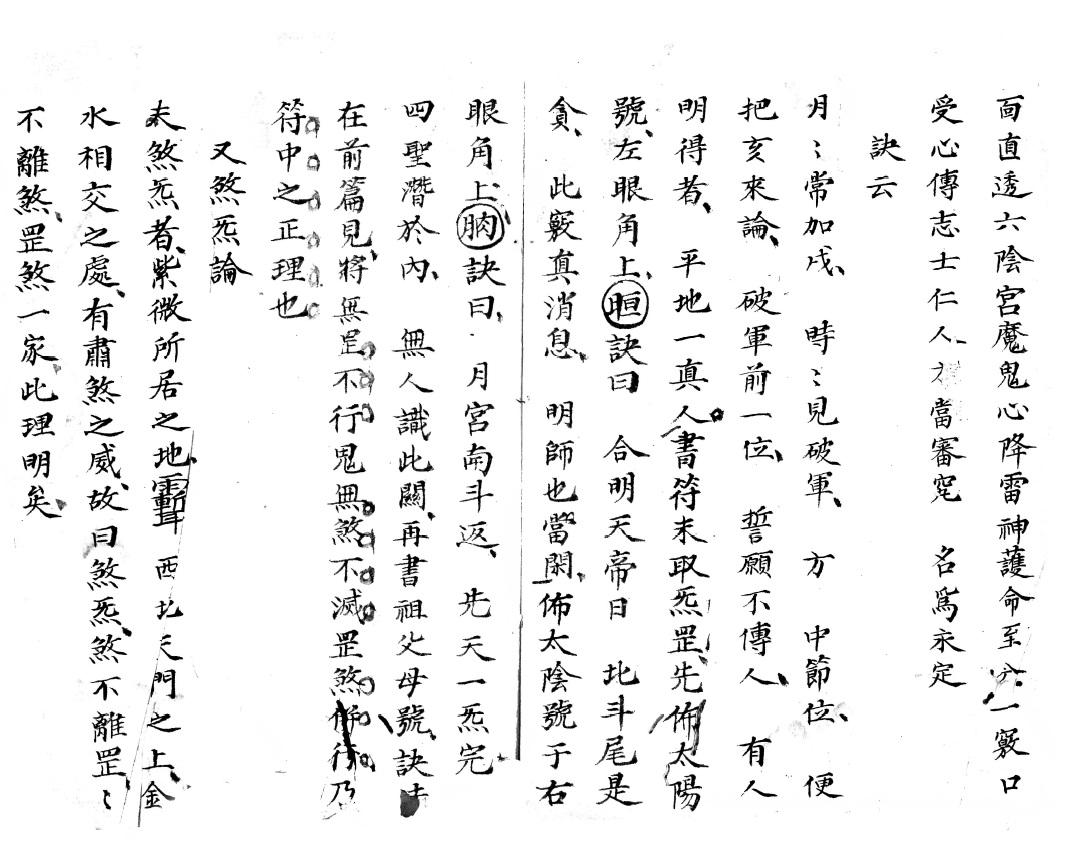 面直透六陰宮魔鬼心降雷神護命至六一竅口
受心傳志士仁人當審定　名爲永定
訣云
月〻常加戌、　時〻見破軍、　方　中節位、　便
把亥來論、　破軍前一位、　誓願不傳人、　有人
明得者、　平地一真人書符末取炁罡、先佈太陽
號、左眼角上、㫜訣曰　合明天帝日　北斗尾是
貪、　此竅真消息、　明師也當閑、佈太陰號于右
眼角上、朒訣曰、月宮南斗返、　先天一炁完、
四聖潛於內、　無人識此關、再書祖父母號、訣
在前篇見、將無罡不行鬼無煞不滅罡煞行、乃
符中之正理也
又煞炁論
夫煞炁者、紫微所居之地、䨴　西北天門之上、金
水相交之處、有肅煞之威、故曰煞炁、煞不離罡、〻
不離煞、罡煞一家、此理明矣、